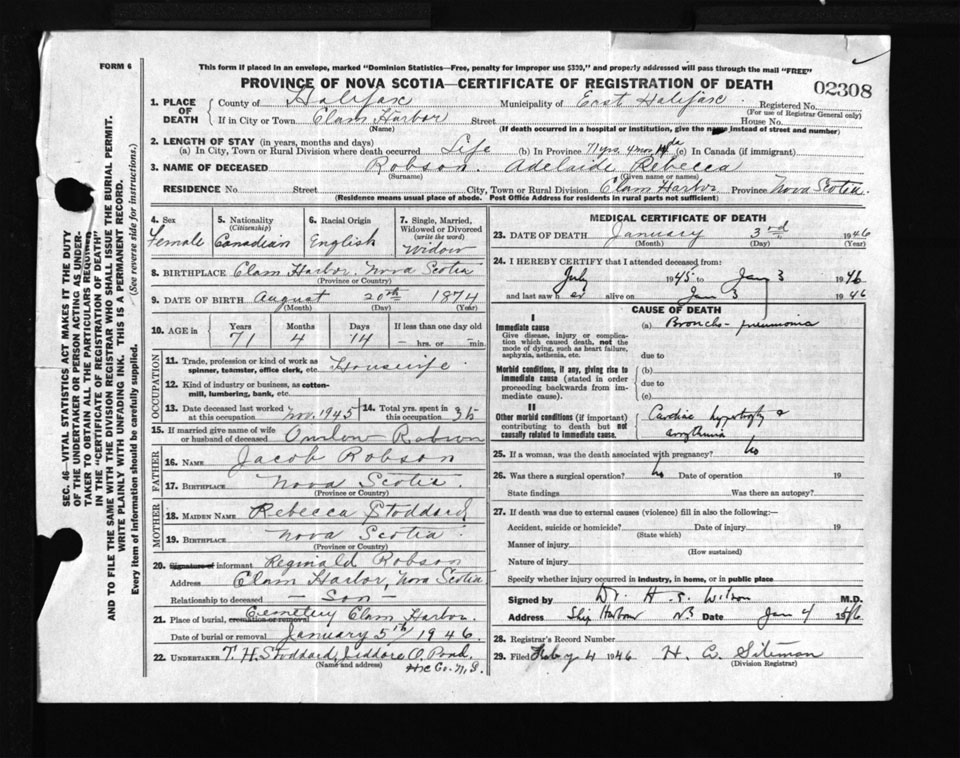 FORM 6
This form if placed in an envelope, marked "Dominion Statistics—Free, penalty for improper use $300, and properly addressed will pass through the mail "FREE"
PROVINCE OF NOVA SCOTIA—CERTIFICATE OF REGISTRATION OF DEATH
02308
1. PLACE OF DEATH { County of Halifax Municipality of East Halifax Registered No.
(For use of Registrar General only)
If in City or Town Clam Harbor Street House No.
(Name) (If death occurred in a hospital or institution, give the name instead of street and number)
2. LENGTH OF STAY (in years, months and days)
(a) In City, Town or Rural Division where death occurred Life (b) In Province 71 yrs. 4 mos. 14 da (c) In Canada (if immigrant)
3. NAME OF DECEASED Robson Adelaide Rebecca
(Surname) (Given name or names)
RESIDENCE No. Street City, Town or Rural Division Clam Harbor Province Nova Scotia.
(Residence means usual place of abode. Post Office Address for residents in rural parts not sufficient)
4. Sex Female
5. Nationality (Citizenship) Canadian
6. Racial Origin English
7. Single, Married, Widowed or Divorced (write the word) Widow
8. BIRTHPLACE Clam Harbor. Nova Scotia
(Province or Country)
9. DATE OF BIRTH August 20th 1874
(Month) (Day) (Year)
10. AGE in { Years Months Days If less than one day old
71 4 14 hrs. or min.
OCCUPATION
11. Trade, profession or kind of work as spinner, teamster, office clerk, etc. Housewife
12. Kind of industry or business, as cotton-mill, lumbering, bank, etc.
13. Date deceased last worked at this occupation Nov. 1945 14. Total yrs. spent in this occupation 35
15. If married give name of wife or husband of deceased Onslow Robson
FATHER
16. NAME Jacob Robson
17. BIRTHPLACE Nova Scotia.
(Province or Country)
MOTHER
18. MAIDEN NAME Rebecca Stoddard
19. BIRTHPLACE Nova Scotia
(Province or Country)
20. Signature of informant Reginald Robson
Address Clam Harbor, Nova Scotia
Relationship to deceased — Son —
21. Place of burial, cremation or removal Cemetery Clam Harbor.
Date of burial or removal January 5th 1946.
22. UNDERTAKER T. H. Stoddard, O. Pond.
(Name and address) Hfx Co. N.S.
MEDICAL CERTIFICATE OF DEATH
23. DATE OF DEATH January 3rd 1946
(Month) (Day) (Year)
24. I HEREBY CERTIFY that I attended deceased from:
July 1945 to Jan 3 1946
and last saw her alive on Jan 3 1946
CAUSE OF DEATH
I
Immediate cause (a) Broncho-pneumonia
Give disease, injury or complication which caused death, not the mode of dying, such as heart failure, asphyxia, asthenia, etc.
due to
Morbid conditions, if any, giving rise to immediate cause (stated in order proceeding backwards from immediate cause).
(b)
due to
(c)
II
Other morbid conditions (if important) contributing to death but not causally related to immediate cause.
Cardiac hypertrophy &
arrythmia
25. If a woman, was the death associated with pregnancy? No
26. Was there a surgical operation? No Date of operation 19
State findings Was there an autopsy?
27. If death was due to external causes (violence) fill in also the following:—
Accident, suicide or homicide? Date of injury 19
(State which)
Manner of injury
(How sustained)
Nature of injury
Specify whether injury occurred in industry, in home, or in public place
Signed by Dr. H. S. Wilson M.D.
Address Ship Harbour NS Date Jan 4 1946
28. Registrar's Record Number
29. Filed Feby 4 1946 H. C. Siteman
(Division Registrar)
SEC. 46—VITAL STATISTICS ACT MAKES IT THE DUTY
OF THE UNDERTAKER OR PERSON ACTING AS UNDER-
TAKER TO OBTAIN ALL THE PARTICULARS REQUIRED
IN THE "CERTIFICATE OF REGISTRATION OF DEATH"
AND TO FILE THE SAME WITH THE DIVISION REGISTRAR WHO SHALL ISSUE THE BURIAL PERMIT.
WRITE PLAINLY WITH UNFADING INK. THIS IS A PERMANENT RECORD.
Every item of information should be carefully supplied. (See reverse side for instructions.)